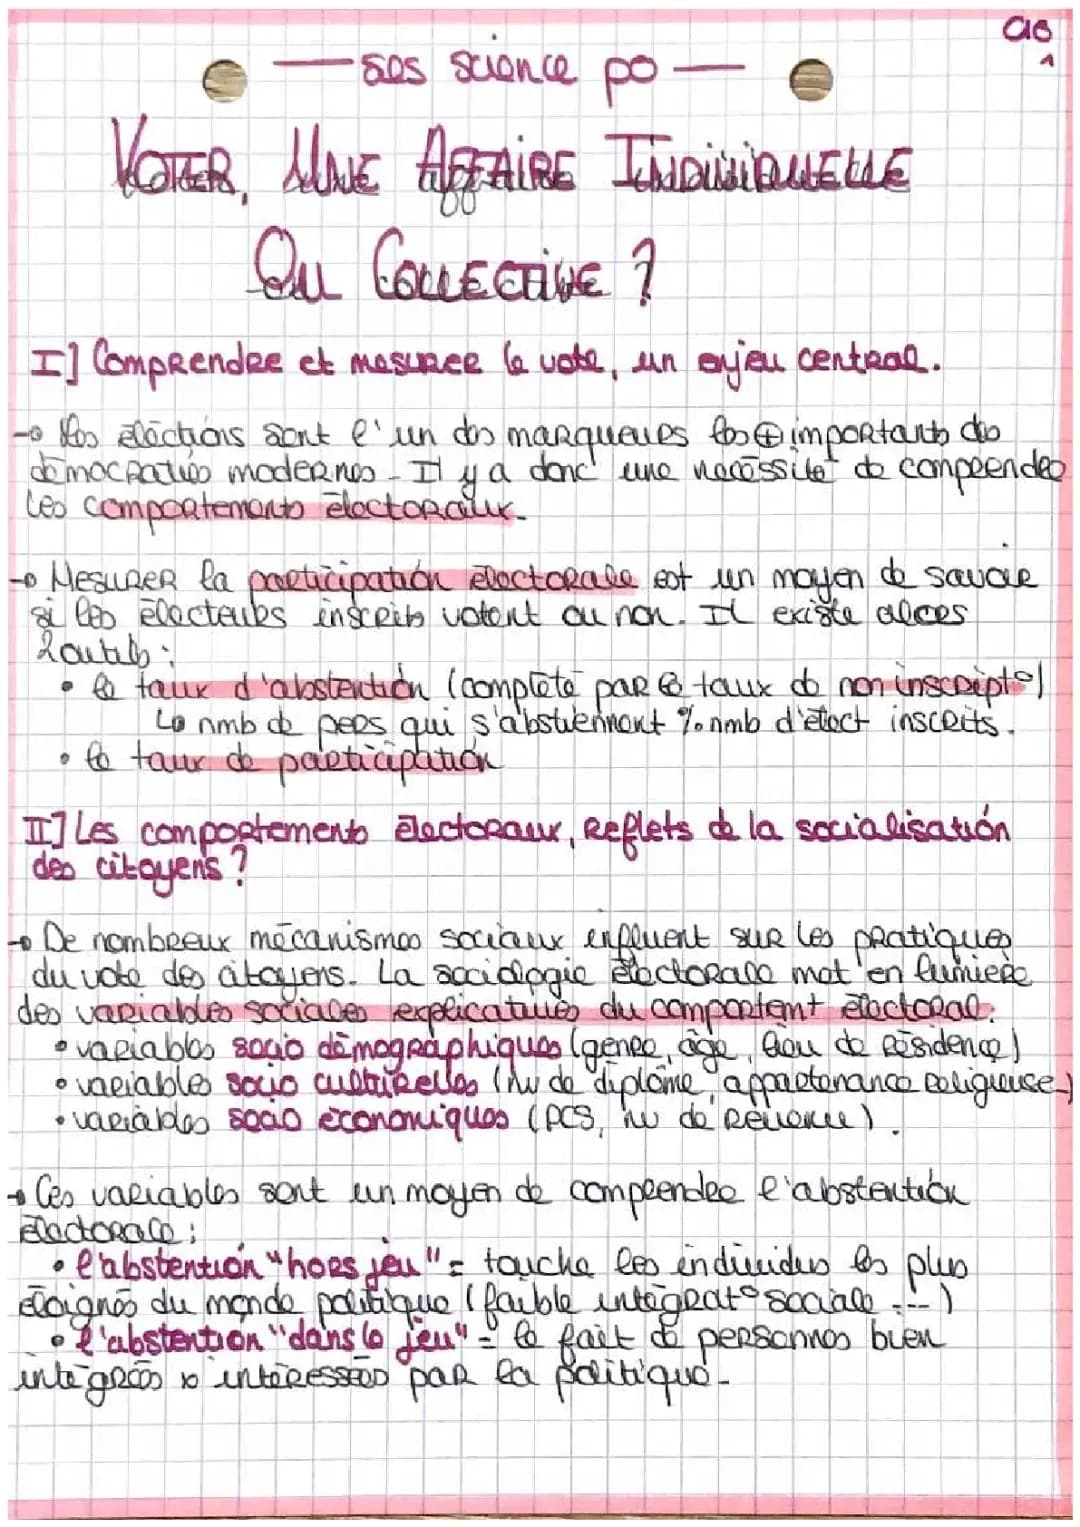 C18
1
ses science po
VOTER, UNE AFFAIRE INDIVIDUELLE
OU COLLECTIVE ?
I] Comprendre et mesurer le vote, un enjeu central.
→ Les élections sont l'un des marqueurs les ⊕ importants des
démocraties modernes. Il y a donc une nécessité de comprendre
les comportements électoraux.
→ Mesurer la participation électorale est un moyen de savoir
si les électeurs inscrits votent ou non. Il existe alors
2 outils :
• le taux d'abstention (complété par le taux de non inscript°)
↳ nmb de pers qui s'abstiennent % nmb d'élect inscrits.
• le taux de participation
II] Les comportements électoraux, reflets de la socialisation
des citoyens ?
→ De nombreux mécanismes sociaux influent sur les pratiques
du vote des citoyens. La sociologie électorale met en lumière
des variables sociales explicatives du comportemt électoral.
• variables socio démographiques (genre, âge, lieu de résidence)
• variables socio culturelles (niv de diplôme, appartenance religieuse)
• variables socio économiques (PCS, niv de revenu).
→ Ces variables sont un moyen de comprendre l'abstention
électorale :
• l'abstention "hors jeu" = touche les individus les plus
éloignés du monde politique (faible intégrat° sociale ...)
• l'abstention "dans le jeu" = le fait de personnes bien
intégrées & intéressées par la politique.